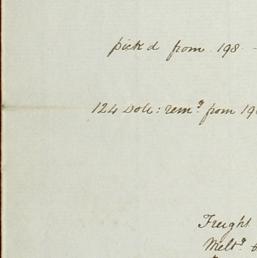 pick'd from 198 -
124 Dole: rem.g from 19
Freight
Melt.g